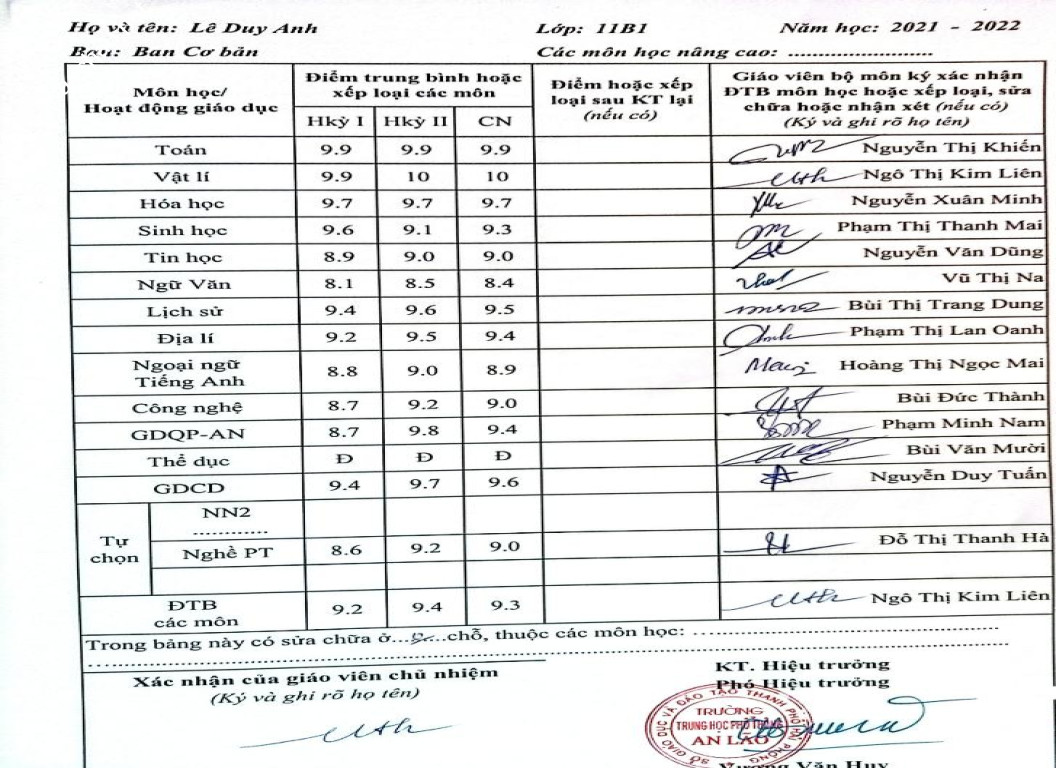 Họ và tên: Lê Duy Anh Lớp: 11B1 Năm học: 2021 - 2022
Ban: Ban Cơ bản Các môn học nâng cao: ........................
Môn học/ Hoạt động giáo dục Điểm trung bình hoặc xếp loại các môn Điểm hoặc xếp loại sau KT lại (nếu có) Giáo viên bộ môn ký xác nhận ĐTB môn học hoặc xếp loại, sửa chữa hoặc nhận xét (nếu có) (Ký và ghi rõ họ tên)
Hkỳ I Hkỳ II CN
Toán 9.9 9.9 9.9 Nguyễn Thị Khiến
Vật lí 9.9 10 10 Ngô Thị Kim Liên
Hóa học 9.7 9.7 9.7 Nguyễn Xuân Minh
Sinh học 9.6 9.1 9.3 Phạm Thị Thanh Mai
Tin học 8.9 9.0 9.0 Nguyễn Văn Dũng
Ngữ Văn 8.1 8.5 8.4 Vũ Thị Na
Lịch sử 9.4 9.6 9.5 Bùi Thị Trang Dung
Địa lí 9.2 9.5 9.4 Phạm Thị Lan Oanh
Ngoại ngữ Tiếng Anh 8.8 9.0 8.9 Hoàng Thị Ngọc Mai
Công nghệ 8.7 9.2 9.0 Bùi Đức Thành
GDQP-AN 8.7 9.8 9.4 Phạm Minh Nam
Thể dục Đ Đ Đ Bùi Văn Mười
GDCD 9.4 9.7 9.6 Nguyễn Duy Tuấn
Tự chọn NN2 ............
Nghề PT 8.6 9.2 9.0 Đỗ Thị Thanh Hà
ĐTB các môn 9.2 9.4 9.3 Ngô Thị Kim Liên
Trong bảng này có sửa chữa ở ...... chỗ, thuộc các môn học: ........................
Xác nhận của giáo viên chủ nhiệm
(Ký và ghi rõ họ tên)
KT. Hiệu trưởng
Phó Hiệu trưởng
SỞ GIÁO DỤC VÀ ĐÀO TẠO THÀNH PHỐ HẢI PHÒNG
TRƯỜNG
TRUNG HỌC PHỔ THÔNG
AN LÃO
Vương Văn Huy